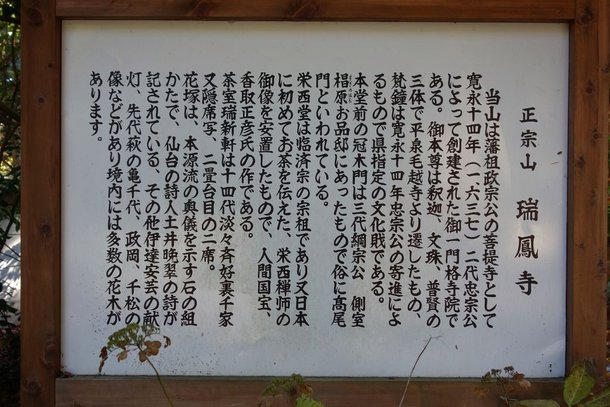 正宗山　瑞鳳寺
当山は藩祖政宗公の菩提寺として
寛永十四年（一六三七）二代忠宗公
によって創建された御一門格寺院で
ある。御本尊は釈迦、文珠、普賢の
三体で平泉毛越寺より遷したもの、
梵鐘は寛永十四年忠宗公の寄進によ
るもので県指定の文化財である。
本堂前の冠木門は三代綱宗公、側室
椙原お品邸にあったもので俗に高尾
門といわれている。
栄西堂は臨済宗の宗祖であり又日本
に初めてお茶を伝えた、栄西禅師の
御像を安置したもので、人間国宝、
香取正彦氏の作である。
茶室瑞新軒は十四代淡々斉好裏千家
又隠席写、二畳台目の二席。
花塚は、本源流の奥儀を示す石の組
かたで、仙台の詩人土井晩翠の詩が
記されている、その他伊達安芸の献
灯、先代萩の亀千代、政岡、千松の
像などがあり境内には多数の花木が
あります。